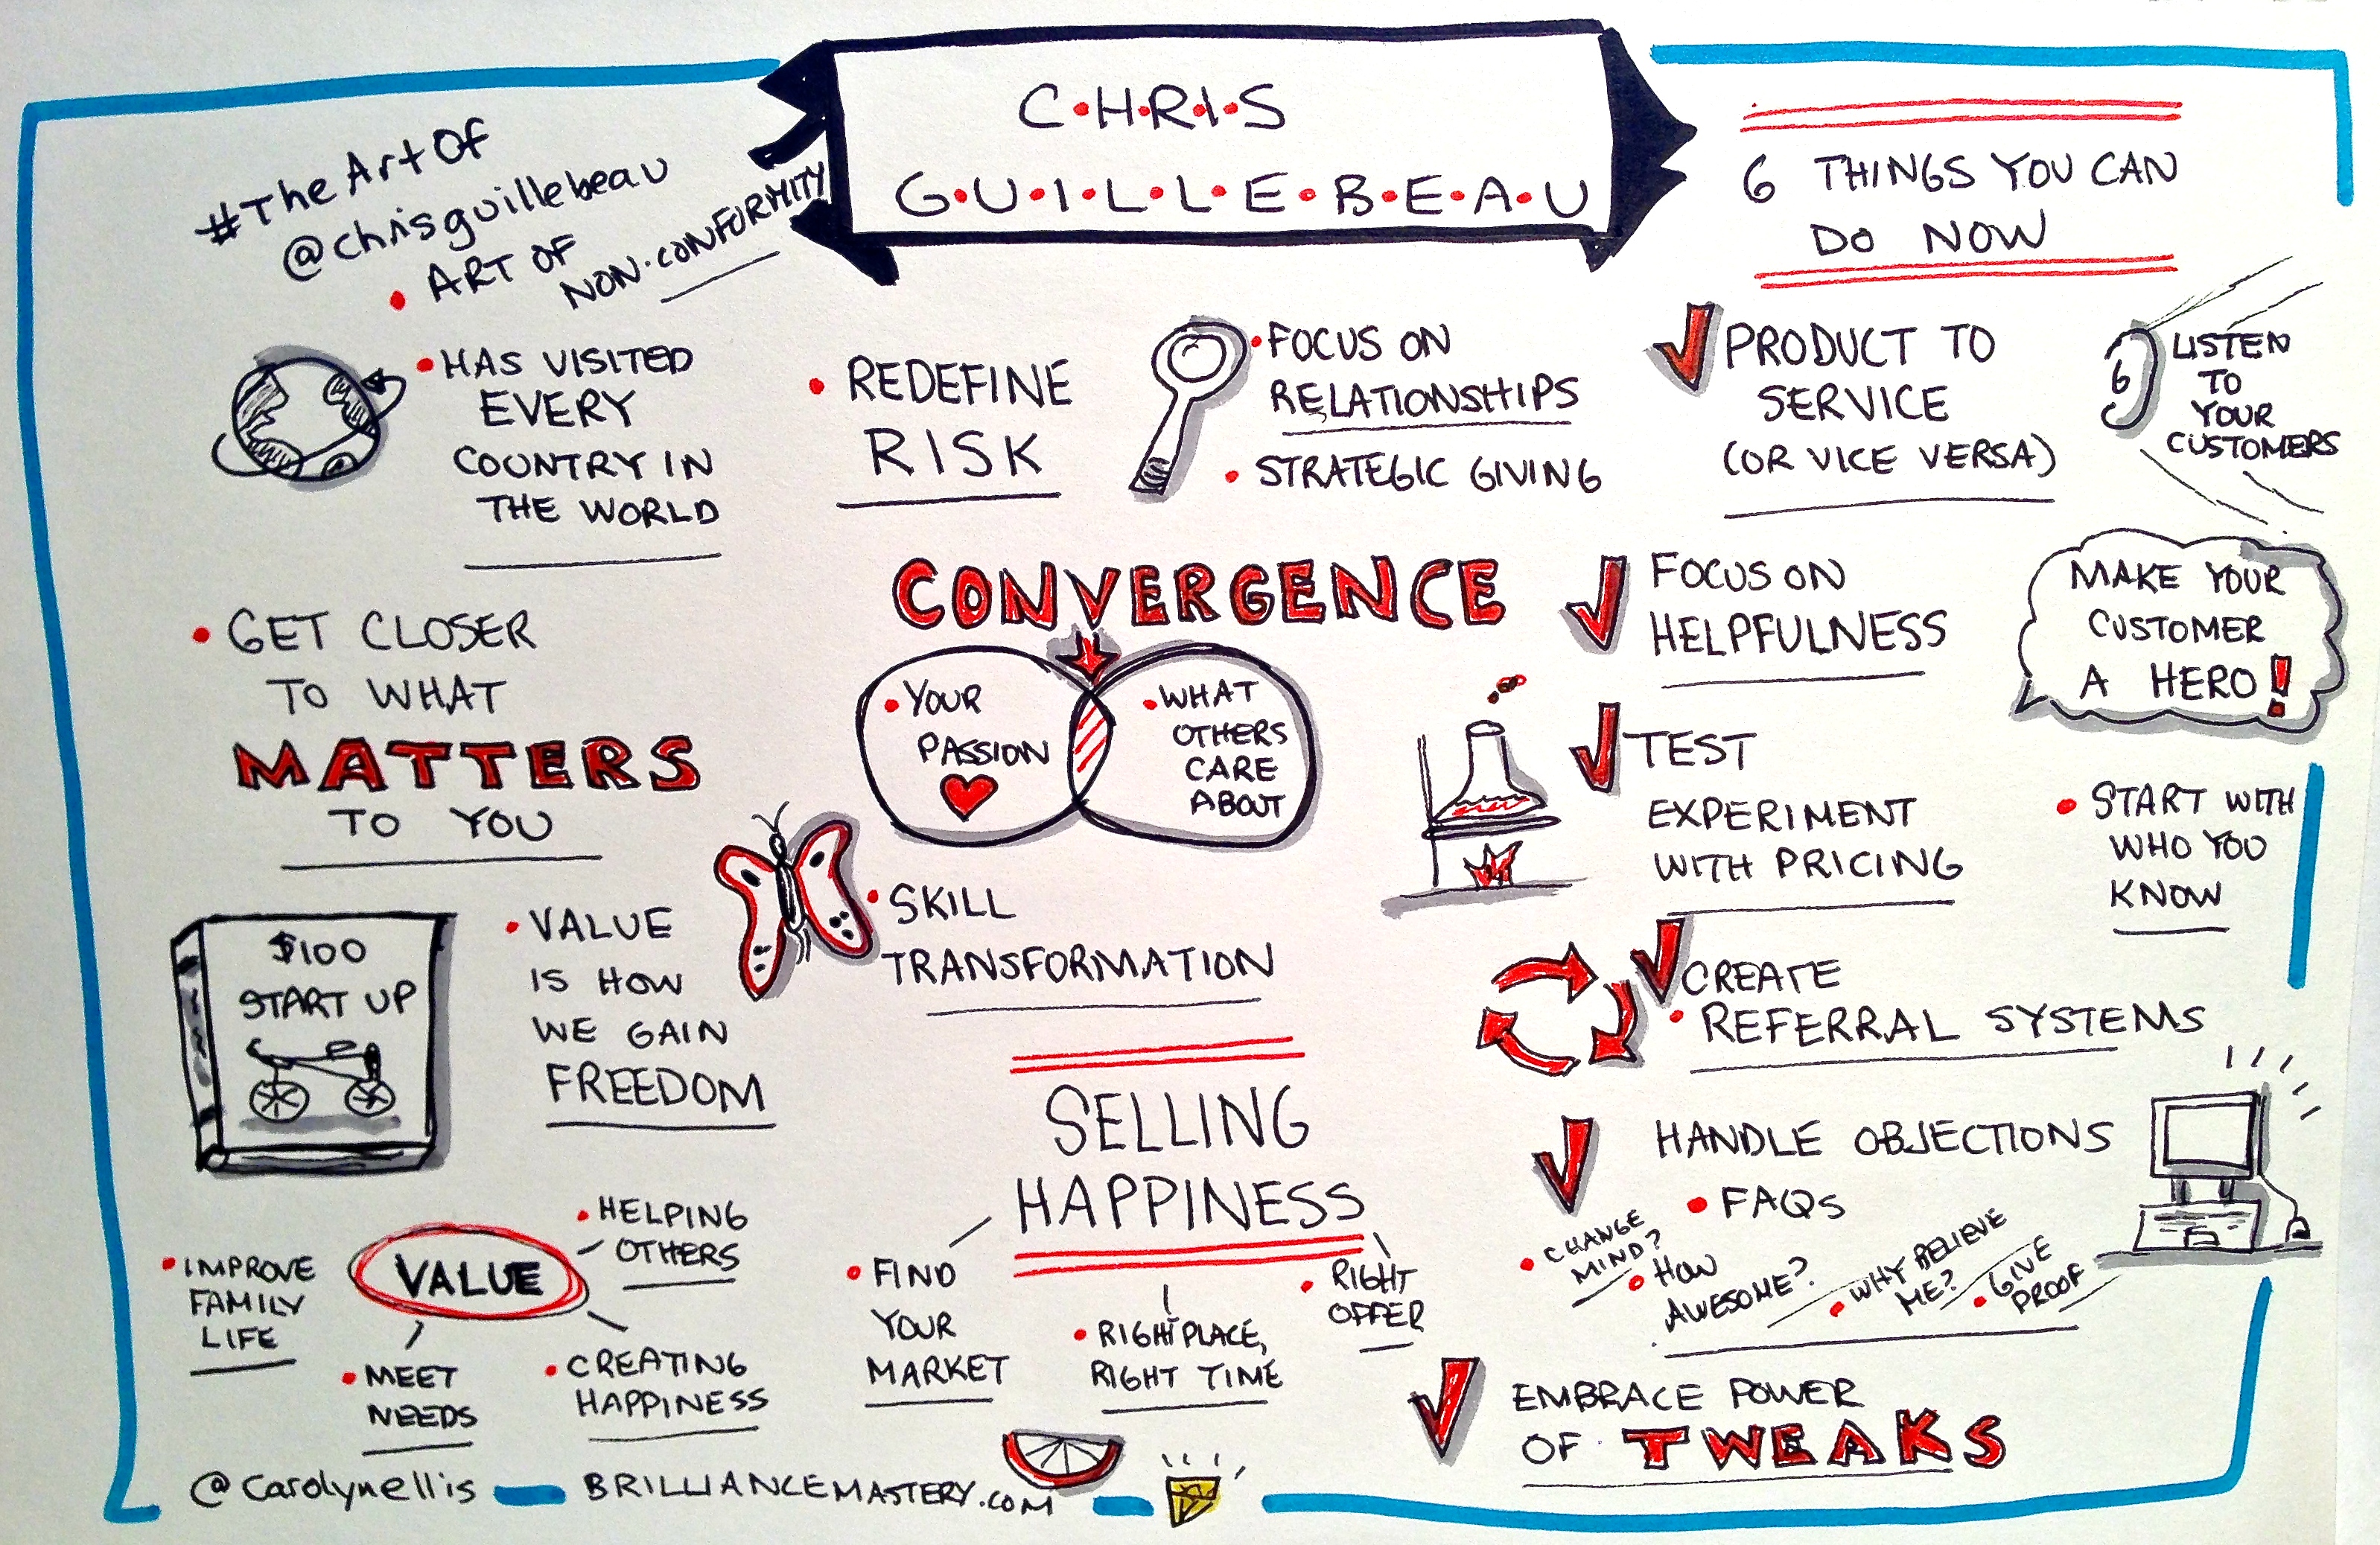 C·H·R·I·S
G·U·I·L·L·E·B·E·A·U
#TheArtOf
@chrisguillebeau
• ART OF
NON·CONFORMITY
• HAS VISITED
EVERY
COUNTRY IN
THE WORLD
• GET CLOSER
TO WHAT
MATTERS
TO YOU
$100
START UP
• VALUE
IS HOW
WE GAIN
FREEDOM
VALUE
• HELPING
OTHERS
• IMPROVE
FAMILY
LIFE
• MEET
NEEDS
• CREATING
HAPPINESS
• REDEFINE
RISK
• FOCUS ON
RELATIONSHIPS
• STRATEGIC GIVING
CONVERGENCE
• YOUR
PASSION
• WHAT
OTHERS
CARE
ABOUT
• SKILL
TRANSFORMATION
SELLING
HAPPINESS
• FIND
YOUR
MARKET
• RIGHT PLACE,
RIGHT TIME
• RIGHT
OFFER
6 THINGS YOU CAN
DO NOW
PRODUCT TO
SERVICE
(OR VICE VERSA)
LISTEN
TO
YOUR
CUSTOMERS
FOCUS ON
HELPFULNESS
MAKE YOUR
CUSTOMER
A HERO!
TEST
EXPERIMENT
WITH PRICING
• START WITH
WHO YOU
KNOW
CREATE
• REFERRAL SYSTEMS
HANDLE OBJECTIONS
• FAQS
• CHANGE
MIND?
• HOW
AWESOME?
• WHY BELIEVE
ME?
• GIVE
PROOF
EMBRACE POWER
OF TWEAKS
@carolynellis
BRILLIANCEMASTERY.COM